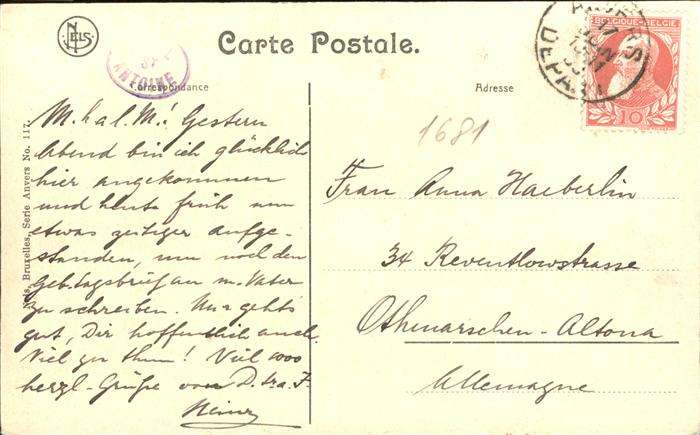 NELS
Carte Postale.
ANTOINE
Correspondance
Adresse
BELGIQUE-BELGIË
10
ANVERS
DEPART
1681
M. h a l. M.! Gestern
Abend bin ich glücklich
hier angekommen
und heute früh um
etwas zeitiger aufge-
standen, um noch den
Geb.tagsbrief an m. Vater
zu schreiben. Mir gehts
gut, Dir hoffentlich auch.
Viel zu thun! Viel 1000
herzl. Grüße von D.
Heinz
Frau Anna Haeberlin
34 Reventlowstrasse
Othmarschen-Altona
Allemagne
Nels, Bruxelles, Serie Anvers No. 117.